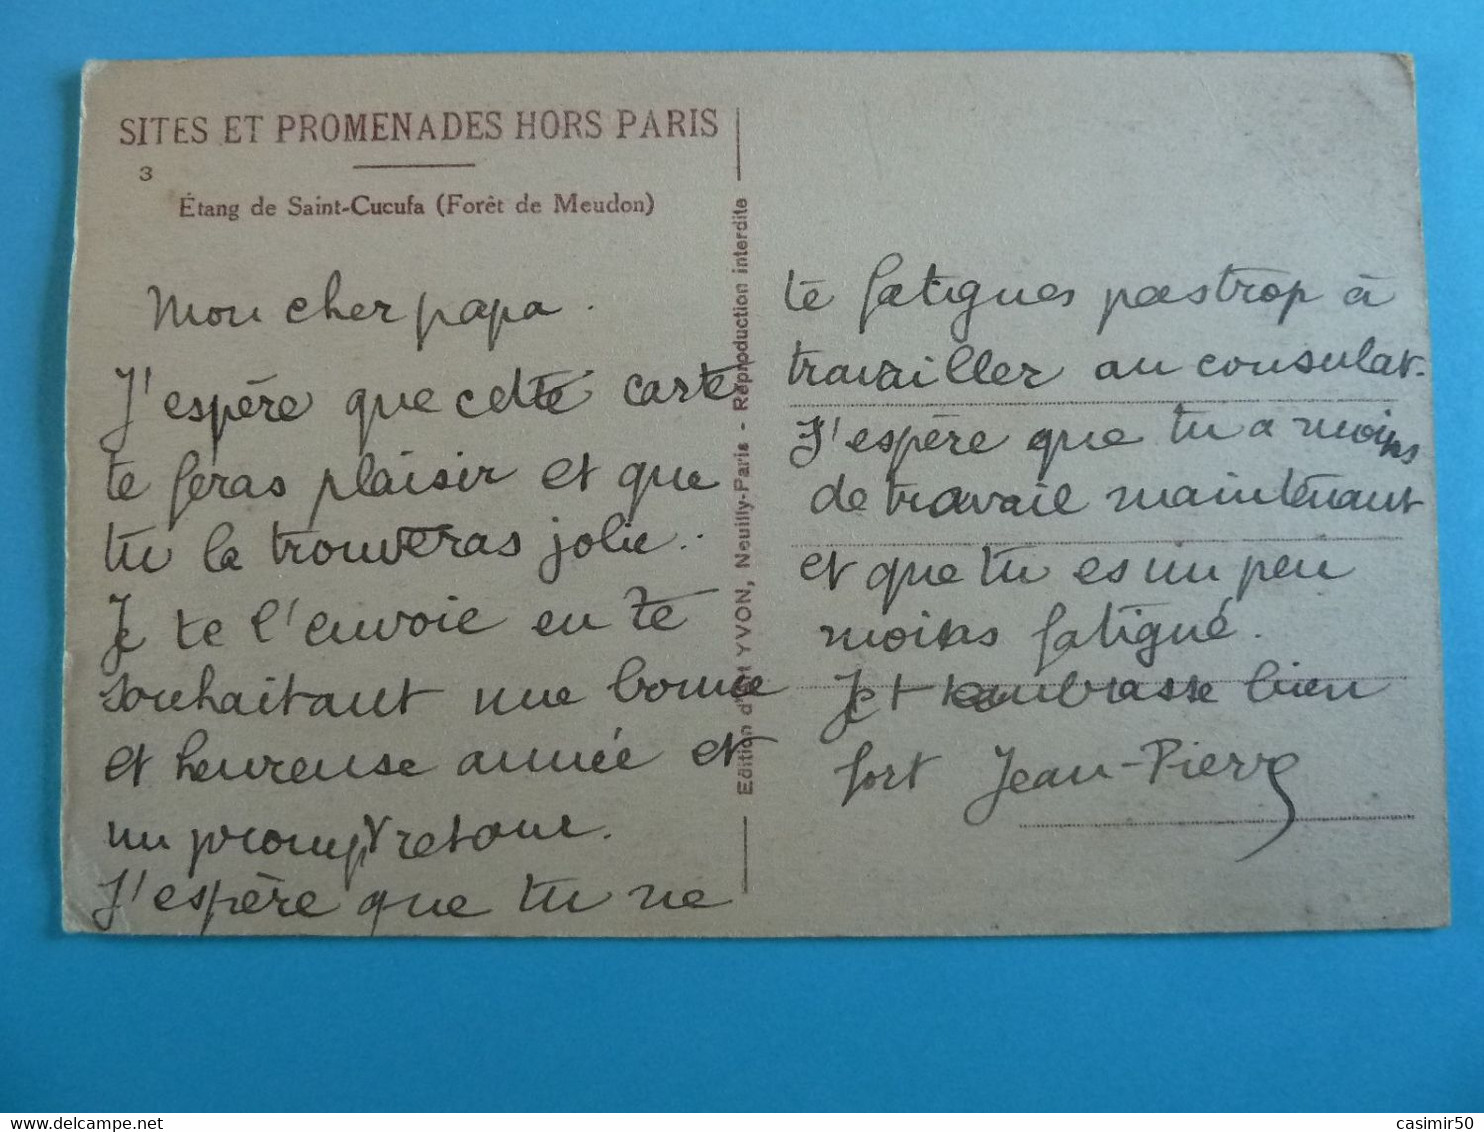 SITES ET PROMENADES HORS PARIS
3
Étang de Saint-Cucufa (Forêt de Meudon)
Mon cher papa.
J'espère que cette carte
te feras plaisir et que
tu la trouveras jolie.
Je te l'envoie en te
souhaitant une bonne
et heureuse année et
un prompt retour.
J'espère que tu ne
Edition d'Art YVON, Neuilly-Paris - Reproduction interdite
te fatigues pas trop à
travailler au consulat.
J'espère que tu a moins
de travail maintenant
et que tu es un peu
moins fatigué.
Je t'embrasse bien
fort Jean-Pierre
casimir50